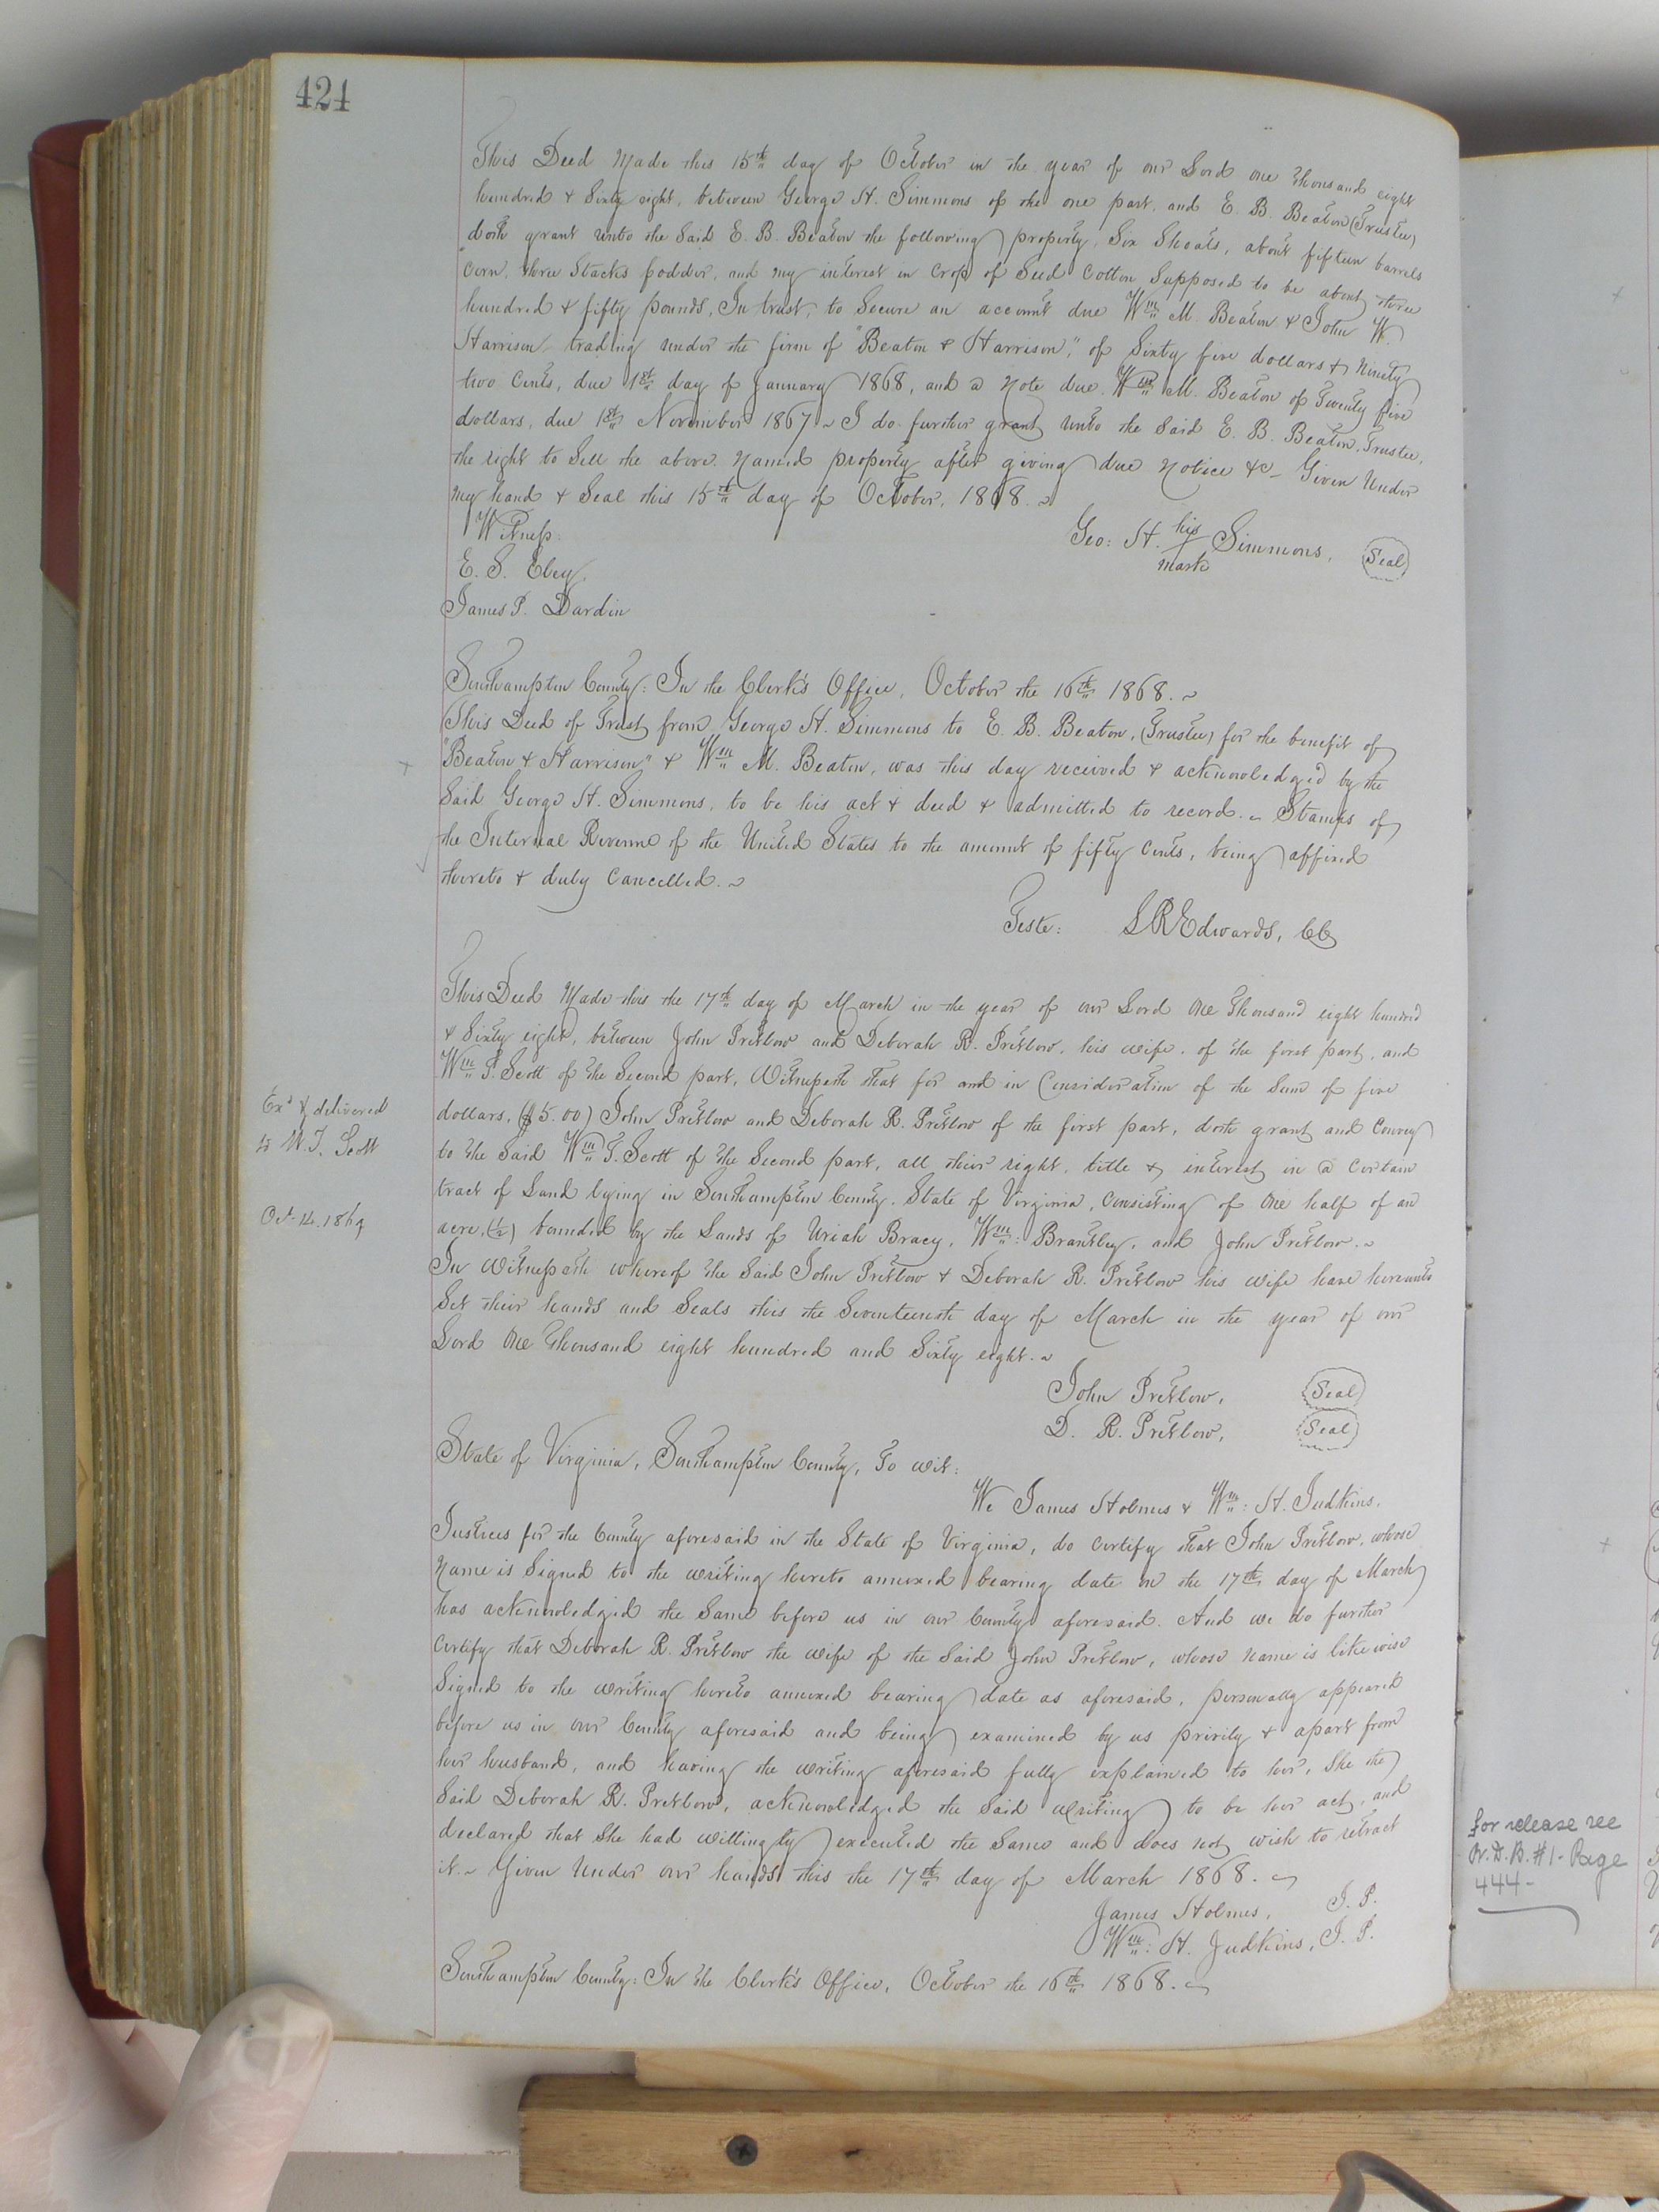 424
This Deed Made this 15th day of October in the year of our Lord one thousand eight
hundred & Sixty eight, between George H. Simmons of the one part, and E. B. Beaton (Trustee)
doth grant unto the Said E. B. Beaton the following property, Six Shoats, about fifteen barrels
corn, three Stacks fodder, and my interest in Crop of Seed Cotton Supposed to be about three
hundred & fifty pounds, In trust, to Secure an account due Wm M. Beaton & John W.
Harrison trading under the firm of "Beaton & Harrison," of Sixty five dollars & Ninety
two Cents, due 1st day of January 1868, and a Note due Wm M. Beaton of Twenty five
dollars, due 1st November 1867 ~ I do further grant unto the Said E. B. Beaton, Trustee,
the right to Sell the above Named property after giving due Notice &c - Given Under
My hand & Seal this 15th day of October, 1868. ~
Witness.
Geo: H. his Simmons, Seal
mark
E. S. Eley,
James P. Dardin
Southampton County: In the Clerk's Office, October the 16th 1868. ~
This Deed of Trust from George H. Simmons to E. B. Beaton, (Trustee) for the benefit of
"Beaton & Harrison" & Wm M. Beaton, was this day received & acknowledged by the
Said George H. Simmons, to be his act & deed & admitted to record. ~ Stamps of
the Internal Revenue of the United States to the amount of fifty Cents, being affixed
thereto & duly Cancelled. ~
Teste: L R Edwards, CC
This Deed Made this the 17th day of March in the year of our Lord One Thousand eight hundred
& Sixty eight, between John Pretlow and Deborah R. Pretlow, his wife, of the first part, and
Wm T. Scott of the Second part, Witnesseth that for and in Consideration of the Sum of five
dollars, ($5.00) John Pretlow and Deborah R. Pretlow of the first part, doth grant and Convey
Exd & delivered
to W. T. Scott
Oct. 14. 1869
to the Said Wm T. Scott of the Second part, all their right, title & interest in a Certain
tract of Land lying in Southampton County, State of Virginia, Consisting of One half of an
acre, (1/2) bounded by the Lands of Uriah Bracy, Wm: Brantley, and John Pretlow. ~
In Witnesseth whereof the Said John Pretlow & Deborah R. Pretlow his wife have hereunto
Set their hands and Seals this the Seventeenth day of March in the year of our
Lord One Thousand eight hundred and Sixty eight. ~
John Pretlow, Seal
D. R. Pretlow, Seal
State of Virginia, Southampton County, To wit:
We James Holmes & Wm: H. Judkins,
Justices for the County aforesaid in the State of Virginia, do Certify that John Pretlow, whose
Name is Signed to the writing hereto annexed bearing date on the 17th day of March
has acknowledged the Same before us in our County aforesaid. And we do further
Certify that Deborah R. Pretlow the wife of the Said John Pretlow, whose Name is likewise
Signed to the writing hereto annexed bearing date as aforesaid, personally appeared
before us in our County aforesaid and being examined by us privily & apart from
her husband, and having the writing aforesaid fully explained to her, She the
Said Deborah R. Pretlow, acknowledged the Said writing to be her act, and
declared that She had willingly executed the Same and does not wish to retract
it. ~ Given Under our hands this the 17th day of March 1868. ~
James Holmes, J. P.
Wm: H. Judkins, J. P.
Southampton County: In the Clerk's Office, October the 16th 1868. ~
for release see
D. B. #1 - Page
444 -